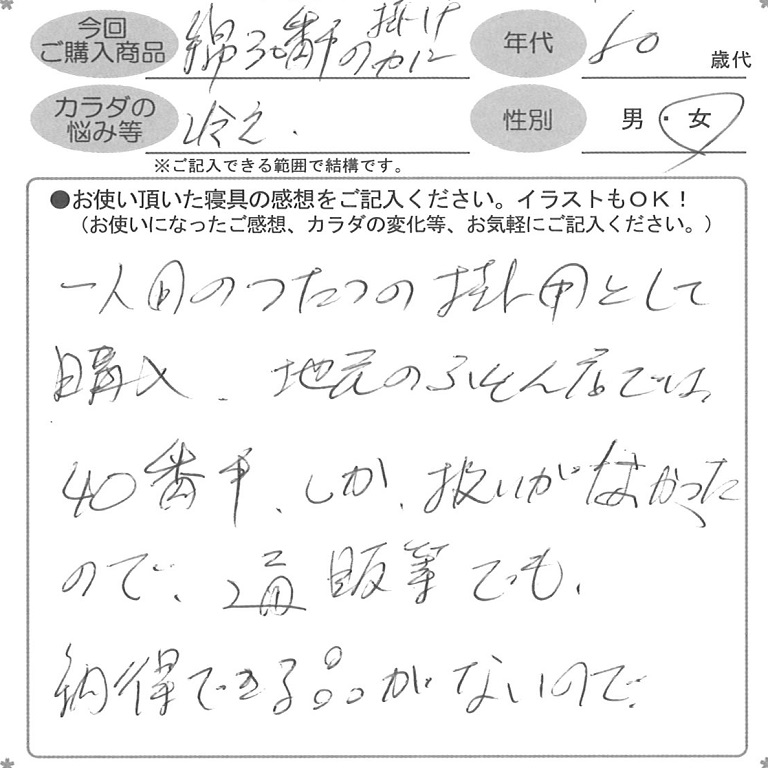 今回ご購入商品 綿 番手の掛けカバー
年代 50 歳代
カラダの悩み等 冷え.
性別 男・女
※ご記入できる範囲で結構です。
●お使い頂いた寝具の感想をご記入ください。イラストもOK!
(お使いになったご感想、カラダの変化等、お気軽にご記入ください。)
一人用のこたつの掛用として
購入、地元のふとん店では、
40番手、しか、扱いがなかった
ので、通販等でも、
納得できる品がないので、